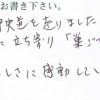 お書き下さい。
快道を走りました
に立ち寄り「巣ごも
しさに感動してい